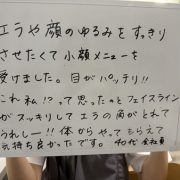 エラや顔のゆるみをすっきり
させたくて小顔メニューを
受けました。目がパッチリ!!
これ私!?って思ったのとフェイスライン
がスッキリしてエラの肉がとれて
うれしー!!体からやってもらえて
気持ち良かったです。 40代 会社員